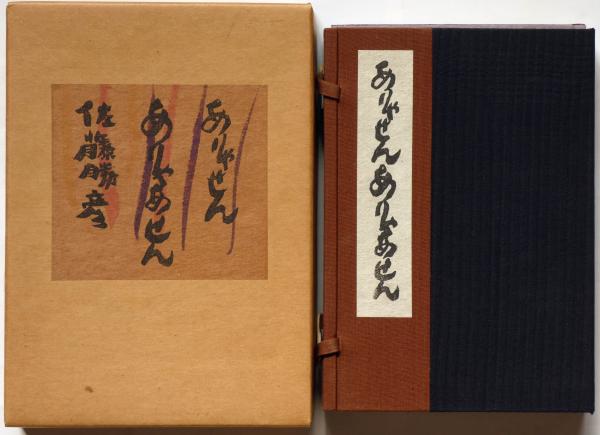 ありゃせん
ありゃあせん
佐藤勝彦
ありゃせんありゃあせん